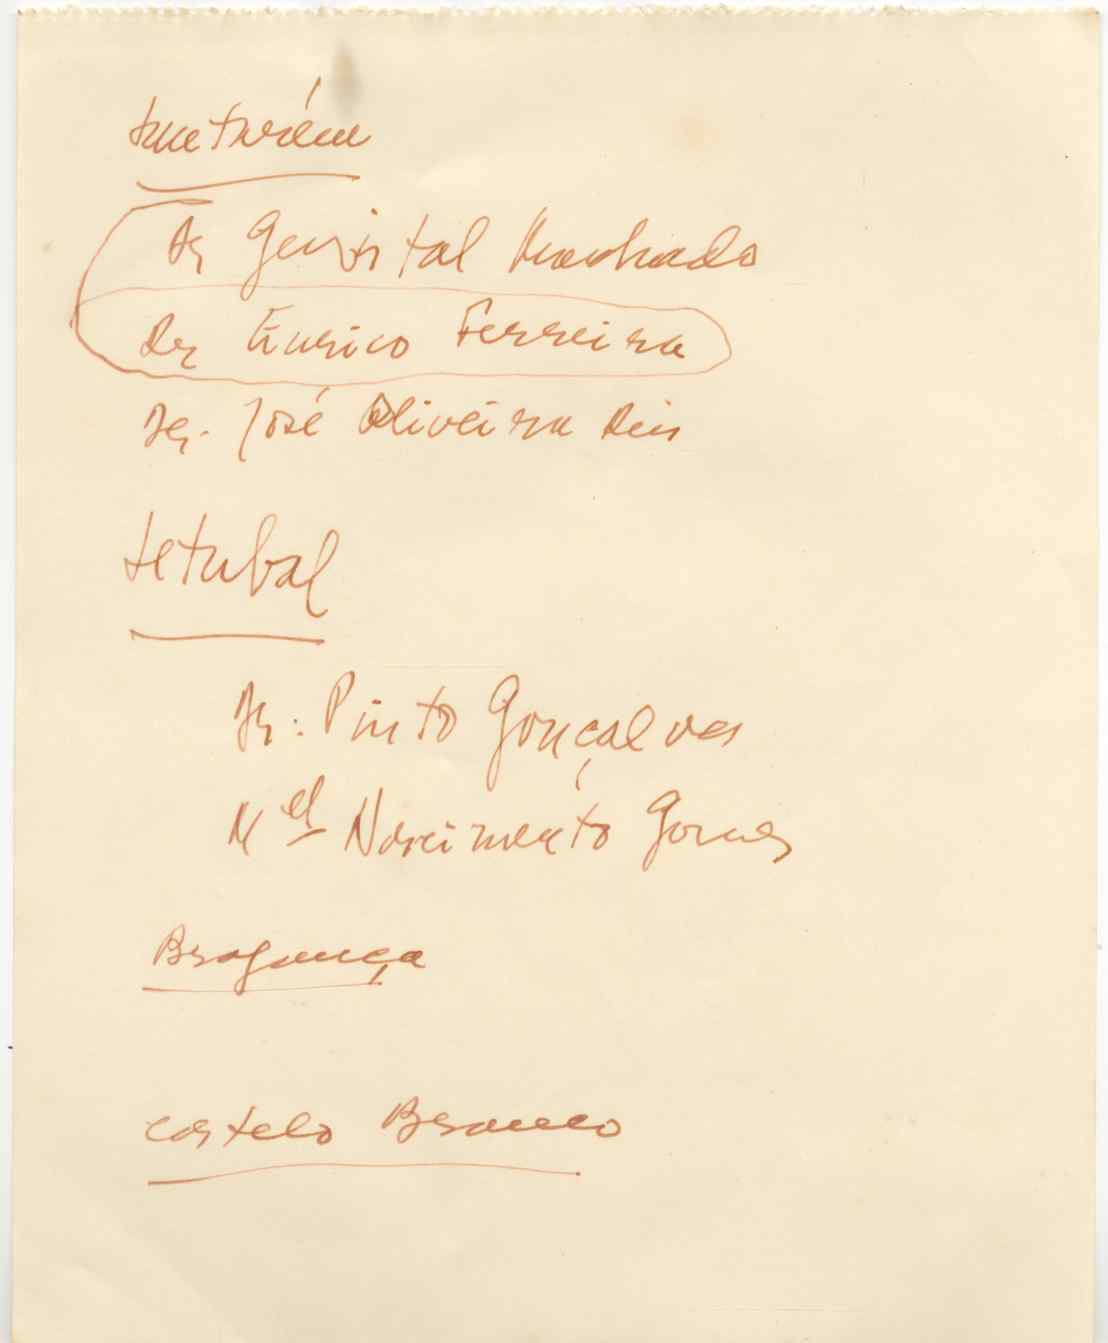 Santarém
Dr Genistal Machado
Dr Eurico Ferreira
Dr. José Oliveira Reis
Setubal
Dr: Pinto Gonçalves
Mel Nascimento Gomes
Bragança
Castelo Branco